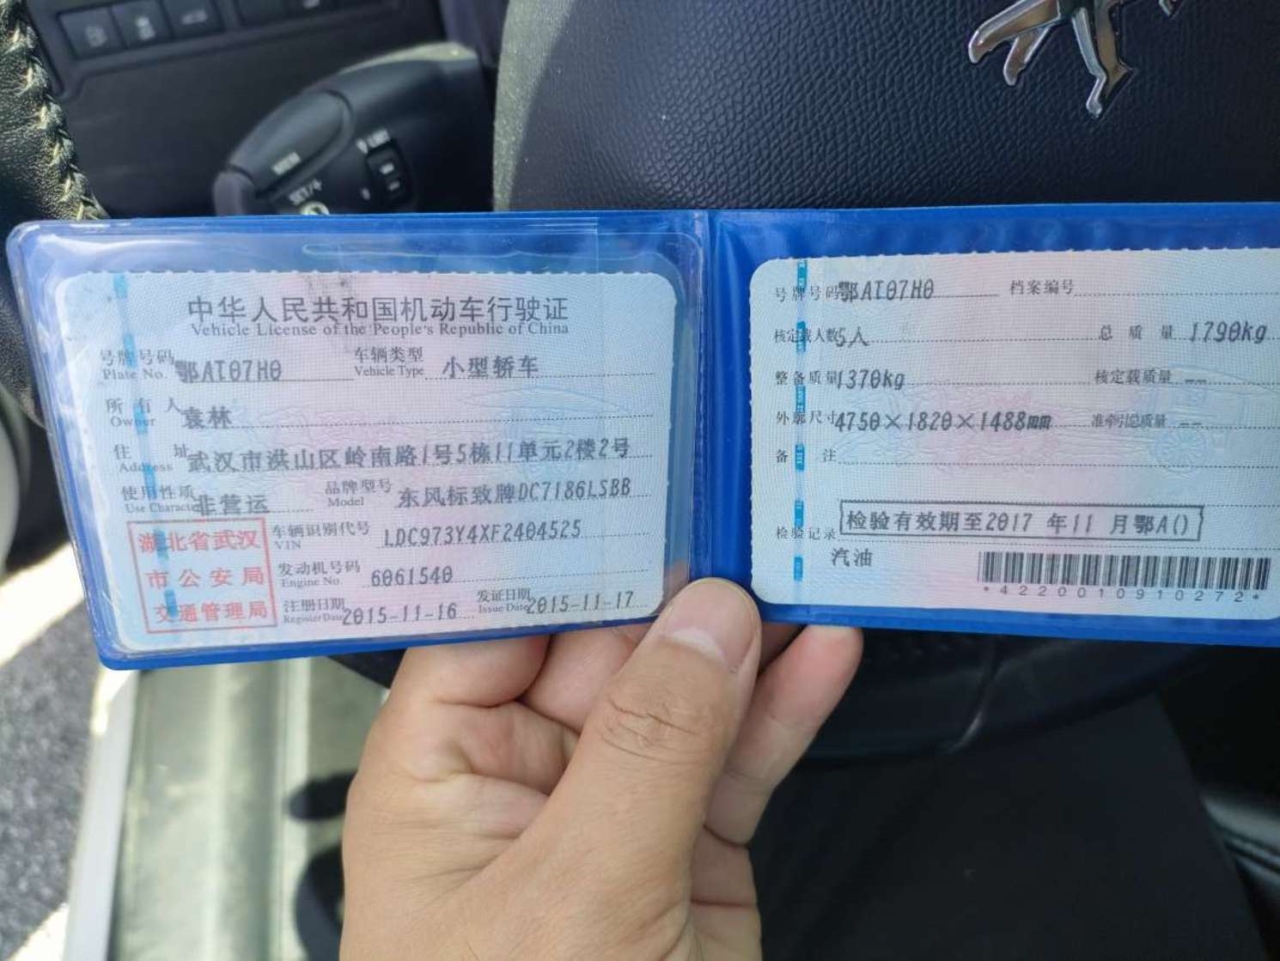 中华人民共和国机动车行驶证
Vehicle License of the People's Republic of China
号牌号码 鄂AT07H0 车辆类型 小型轿车
Plate No. Vehicle Type
所有人 袁林
Owner
住址 武汉市洪山区岭南路1号5栋11单元2楼2号
Address
使用性质 非营运 品牌型号 东风标致牌DC7186LSBB
Use Character Model
湖北省武汉
市公安局
交通管理局
车辆识别代号 LDC973Y4XF2404525
VIN
发动机号码 6061540
Engine No.
注册日期 2015-11-16 发证日期 2015-11-17
Register Date Issue Date
号牌号码 鄂AT07H0 档案编号
核定载人数 5人 总质量 1790kg
整备质量 1370kg 核定载质量 --
外廓尺寸 4750×1820×1488mm 准牵引总质量 --
备注
检验记录 检验有效期至2017 年11 月鄂A()
汽油
*4220010910272*